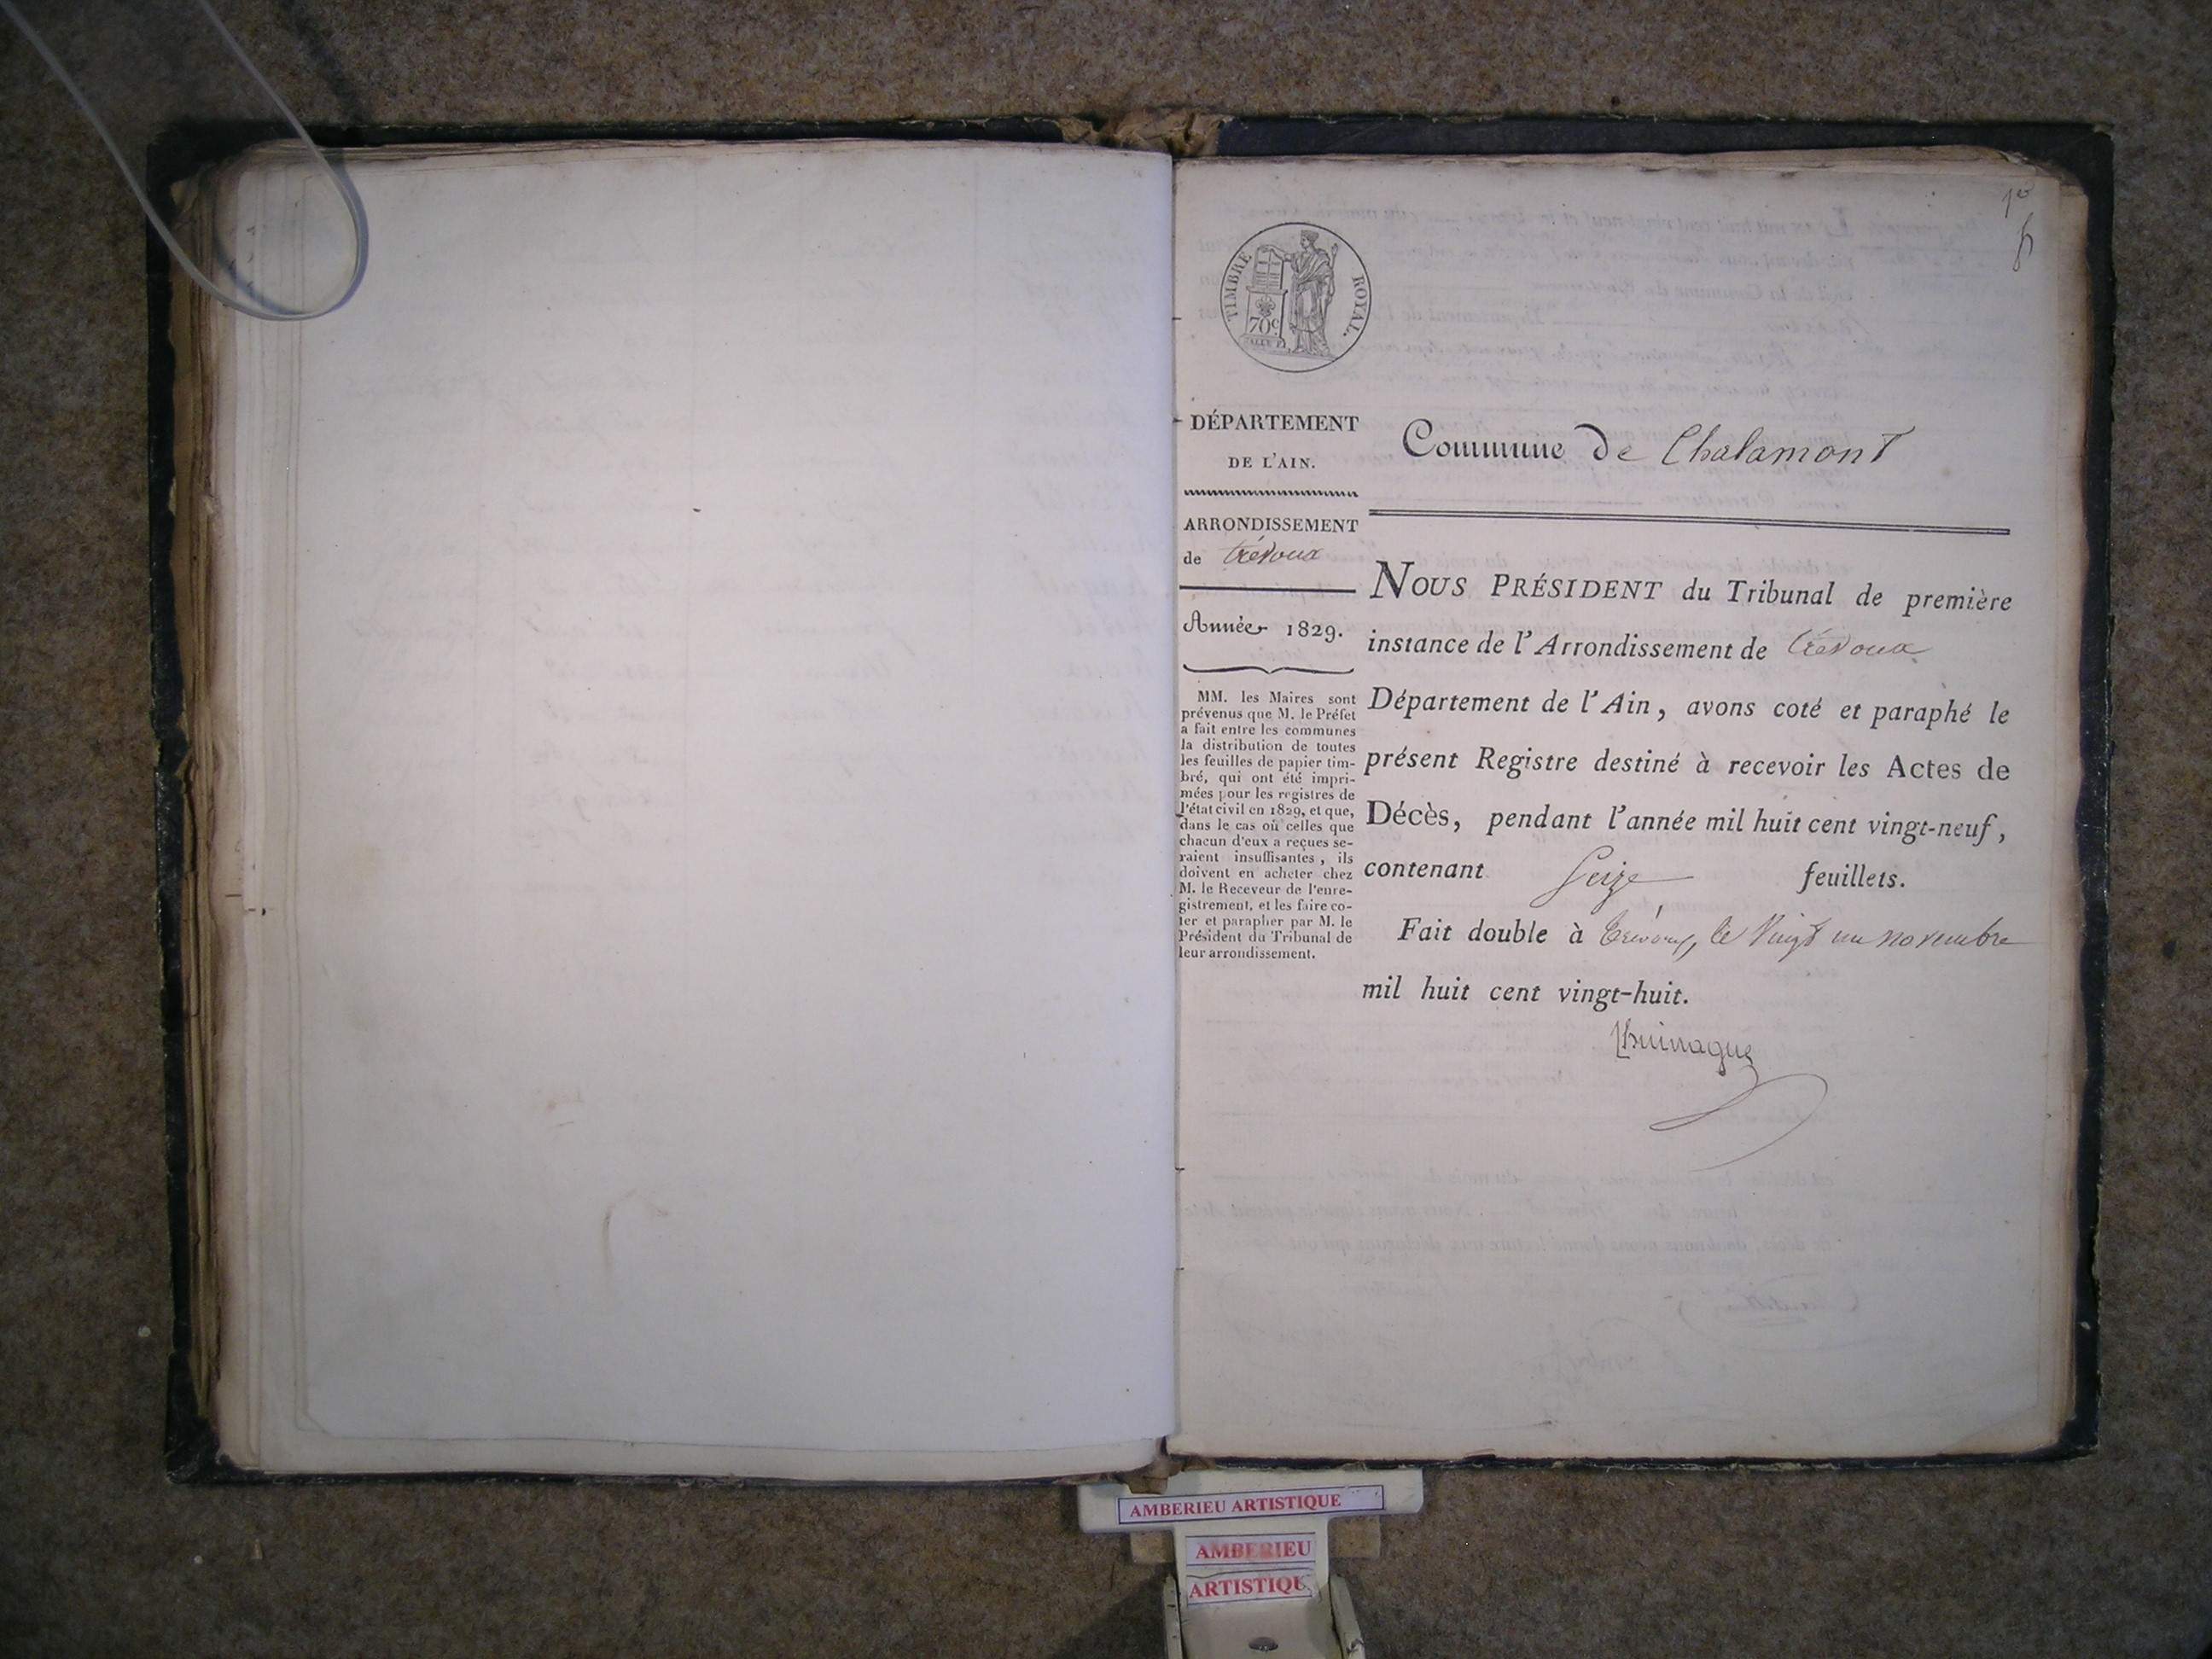 1er
TIMBRE ROYAL.
70c
DÉPARTEMENT
DE L'AIN.
ARRONDISSEMENT
de trévoux
Année 1829.
MM. les Maires sont
prévenus que M. le Préfet
a fait entre les communes
la distribution de toutes
les feuilles de papier tim-
bré, qui ont été impri-
mées pour les registres de
l'état civil en 1829, et que,
dans le cas où celles que
chacun d'eux a reçues se-
raient insuffisantes, ils
doivent en acheter chez
M. le Receveur de l'enre-
gistrement, et les faire co-
ter et parapher par M. le
Président du Tribunal de
leur arrondissement.
Commune de Chalamont
NOUS PRÉSIDENT du Tribunal de première
instance de l'Arrondissement de trévoux
Département de l'Ain, avons coté et paraphé le
présent Registre destiné à recevoir les Actes de
Décès, pendant l'année mil huit cent vingt-neuf,
contenant Seize feuillets.
Fait double à trévoux, le Vingt un novembre
mil huit cent vingt-huit.
AMBERIEU ARTISTIQUE
AMBERIEU
ARTISTIQU